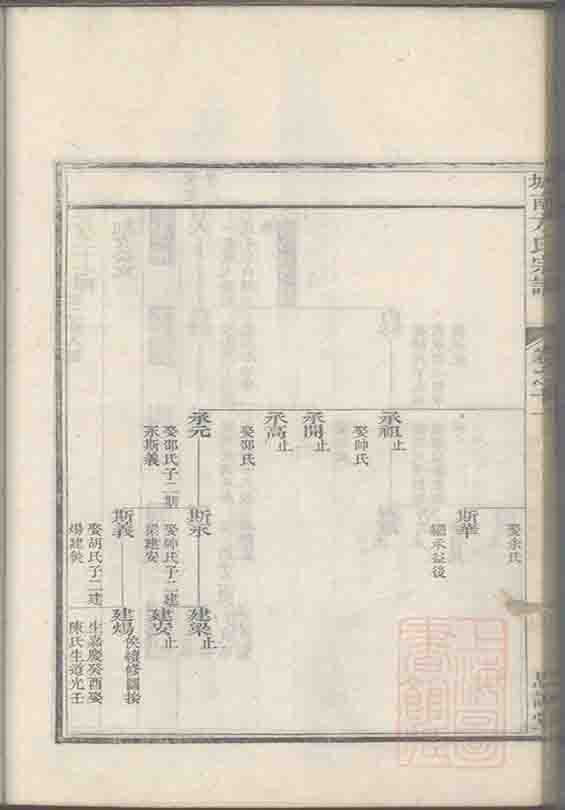 城南方氏宗譜
娶余氏
斯華
繼永益後
承祖止
娶帥氏
承開止
承高止
娶鄧氏
承元
娶鄧氏子二斯
承斯義
斯承
娶帥氏子二建
梁建安
建梁止
建安止
斯義
娶胡氏子二建
煬建侯
建煬
侯續修圖接
生嘉慶癸酉娶
陳氏生道光壬